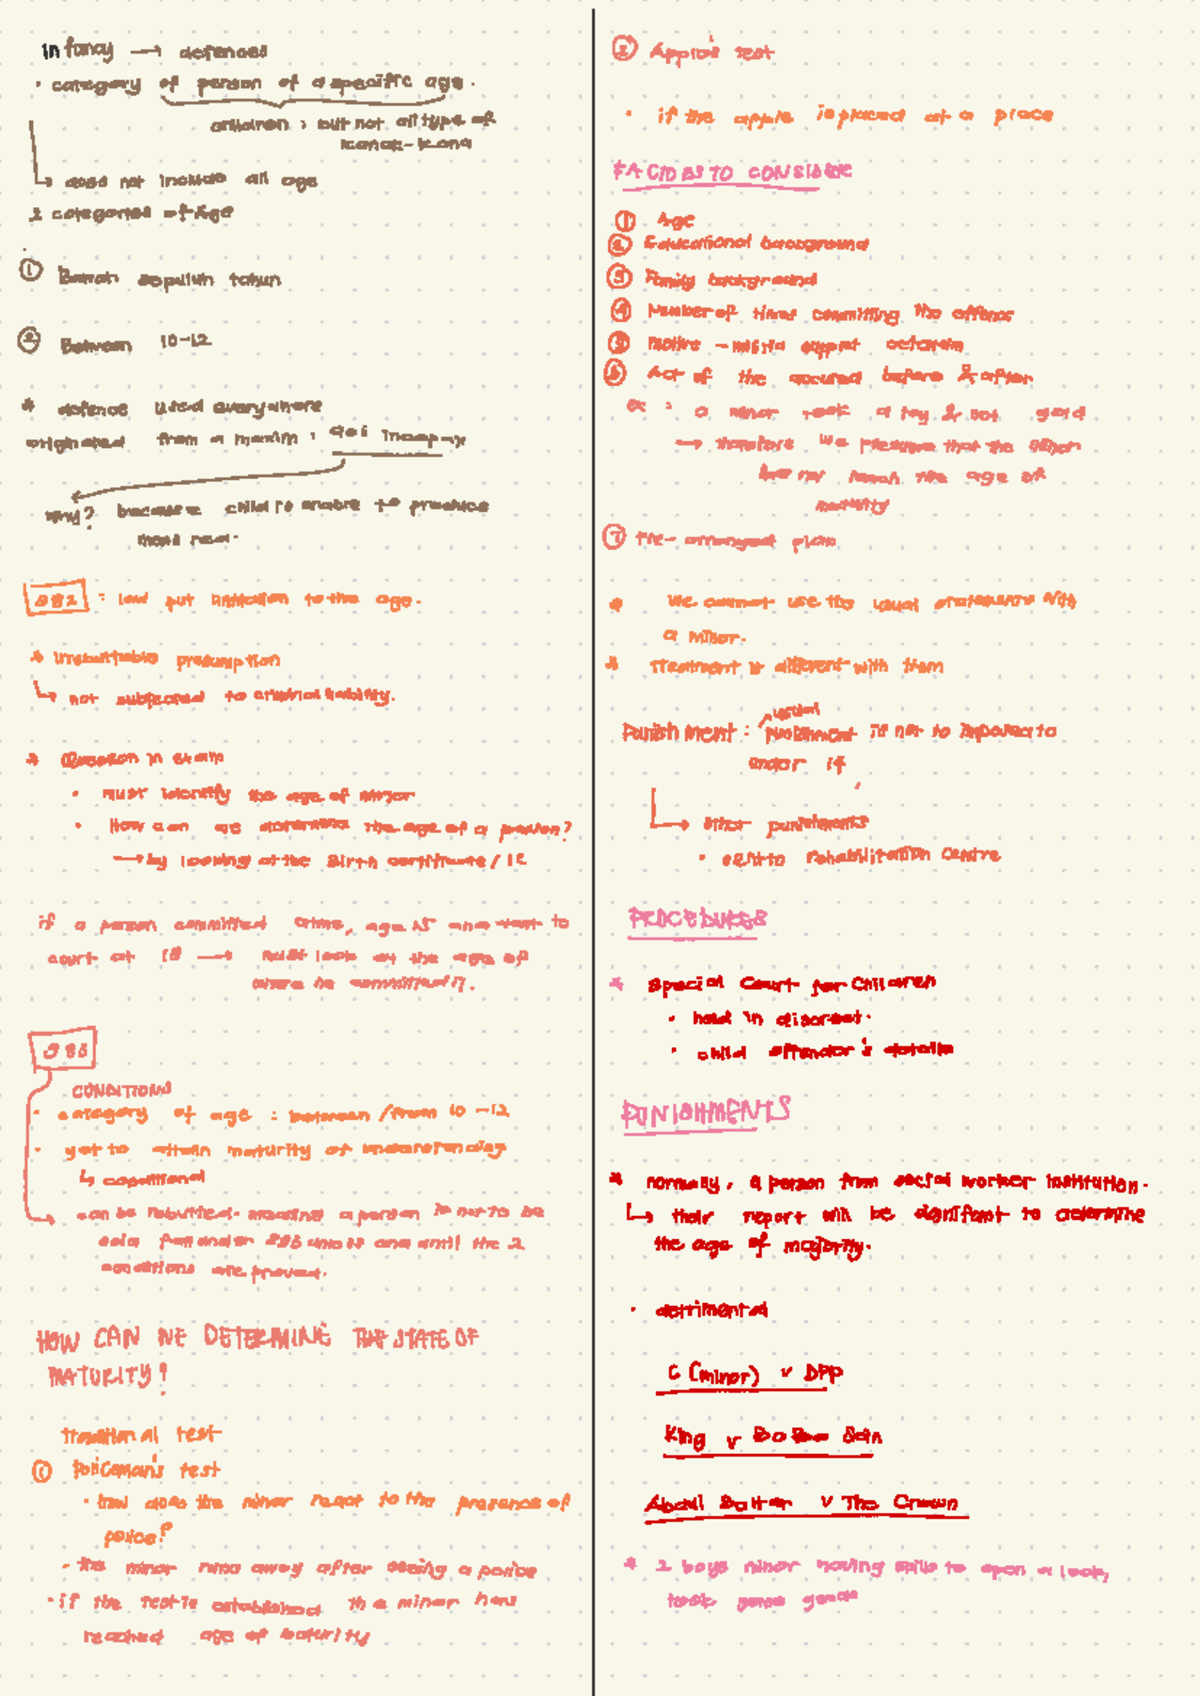 Infancy → defences
• category of person of a specific age.
children : but not all type of
kanak-kanak
↳ does not include all age
2 categories of Age
① Bawah sepuluh tahun
② Between 10-12
* defence used everywhere
originated from a maxim : doli incapax
why? because child is unable to produce
mens rea.
S82 : law put limitation to the age.
* irrebuttable presumption
↳ not subjected to criminal liability.
* Question in exam
• must identify the age of minor
• How can we determine the age of a person?
→ by looking at the Birth certificate / IC
if a person committed crime, age 15 and went to
court at 18 → must look at the age of
where he committed it.
S83
CONDITIONS
• category of age : between /from 10 -12
• yet to attain maturity of understanding
↳ conditional
can be rebutted. meaning a person is not to be
fall under S83 unless and until the 2
conditions are proved.
HOW CAN WE DETERMINE THE STATE OF
MATURITY?
Traditional test
① Policeman's test
• how does the minor react to the presence of
police?
- the minor runs away after seeing a police
• if the test is established the minor has
reached age of maturity
② Apple's test
• if the apple is placed at a place
FACTORS TO CONSIDER
① Age
② Educational background
③ Family background
④ Number of times committing the offence
⑤ Motive -
⑥ Act of the accused before & after
ex : a minor took a toy & not gold
→ therefore we presume that the minor
has not reach the age of
maturity
⑦ Pre- arranged plan
* We cannot use the usual with
a minor.
* Treatment is different with them
Punishment : usual punishment is not to imposed to
under 18
↳ other punishments
• sent to Rehabilitation Centre
PROCEDURES
* Special Court for Children
• held in discreet.
• child offender's details
PUNISHMENTS
* normally, a person from social worker institution.
↳ their report will be significant to determine
the age of majority.
• detrimental
C (minor) v DPP
King v
Abdul Sattar v The Crown
* 2 boys minor having skills to open a lock,
took some goods